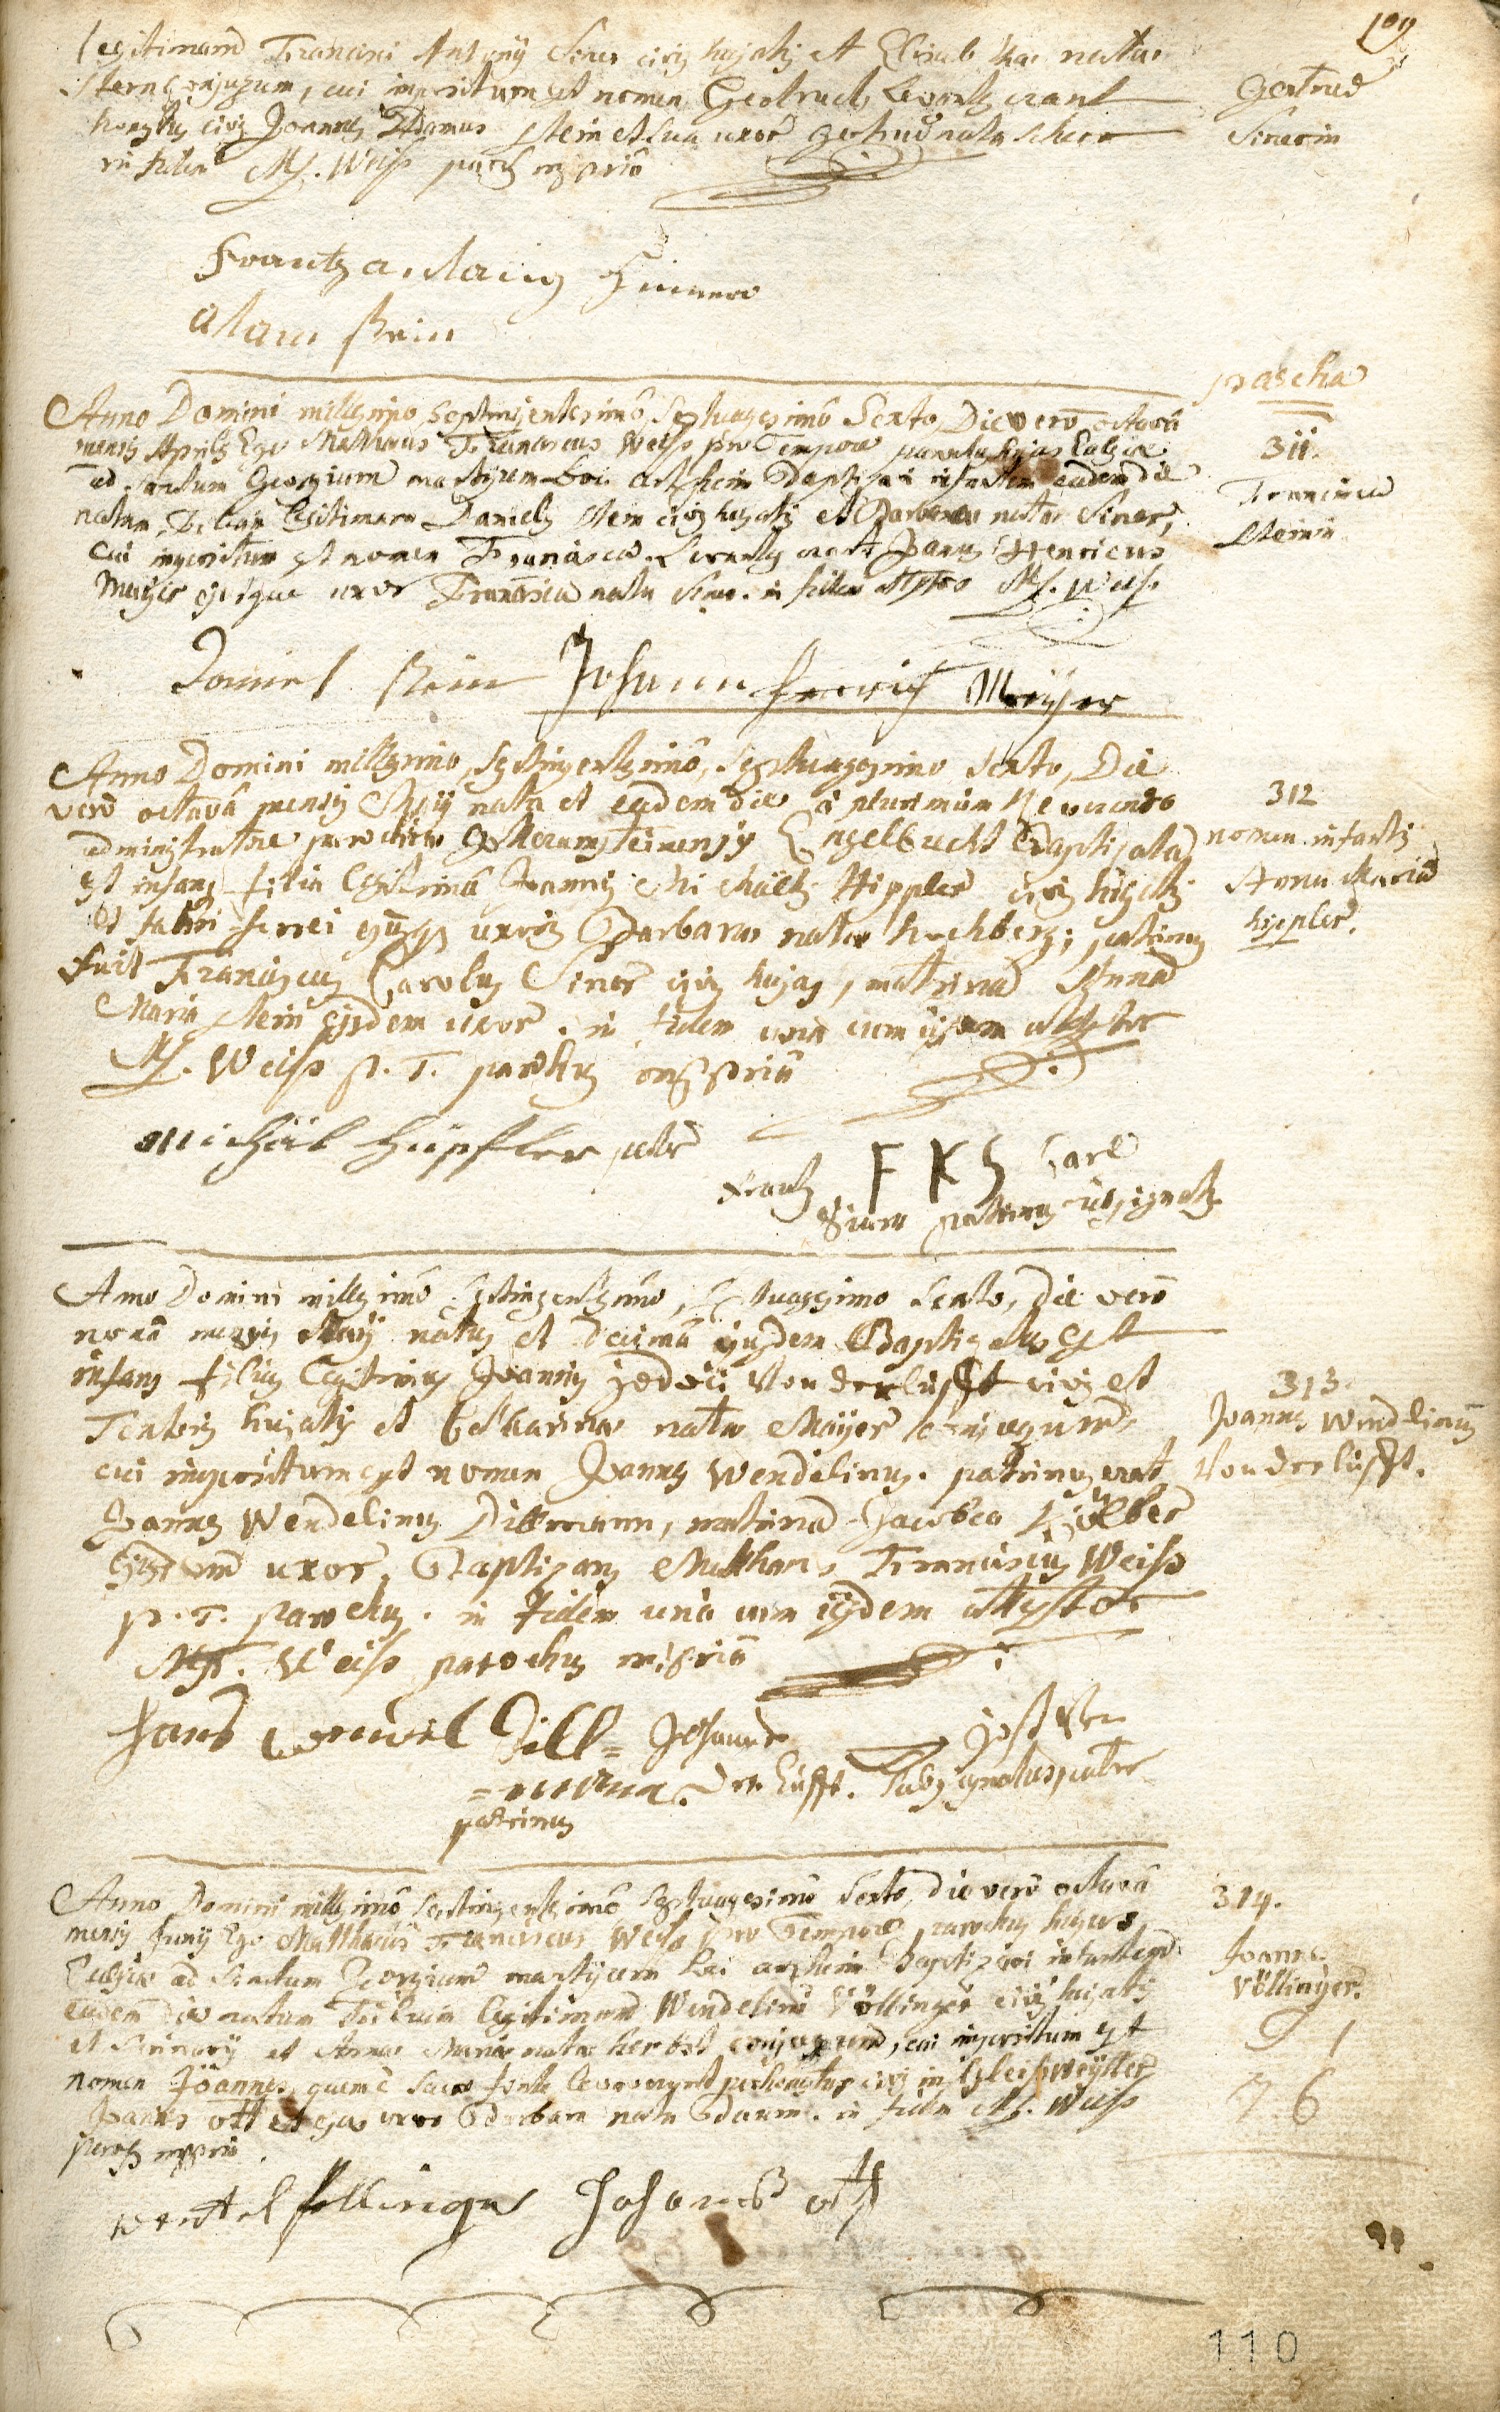 109
legitimam Francisci Antonij Siner civis hujatis et Elisab thae natae
Stern conjugum, cui impositum est nomen Gertrud, levantes erant
Gertrud
Sinerin
honestus civis Joannes Adamus Stein et sua uxor gertrud nata
in fidem M. Weiss parochus mppria
Frantz a. Siener
adam stein
pascha
Anno Domini millesimo septingentesimo septuagesimo Sexto, Die vero octava
mensis Aprilis Ego Matthaeus Franciscus Weiss pro Tempore parochus hujus Eclesiae
ad sanctum Georgium martyrem loci Artzheim Baptizavi infantem eadem die
natam, Filiam legitimam Danielis Stein civis hujatis et Barbarae natae Siner,
cui impositum est nomen Francisca. Levantes erant Joannes Henricus
Meyer ejusque uxor Francisca nata Siner. in fidem attestor M. Weiss
311.
Francisca
Steinin
Daniel stein Johann Henrich Meyer
Anno Domini millesimo, septingentesimo, septuagesimo sexto, Die
vero octava mensis Maij nata et eadem die a plurimum Reverendo
administratore parochiae Engelbrecht Baptizata
est infans filia legitima Joannis Michaelis Hippler civis hujatis
et fabri ferrei ejusque uxoris Barbarae natae hochberg; patrinus
fuit Franciscus Carolus Siner civis hujas, matrina Anna
Maria Stein ejusdem uxor. in fidem una cum ijsdem attestor
M. Weiss p. T. parochus mppria
312
nomen infantis
Anna Maria
hippler.
Michäel hüpfler pater
Frantz F K S Carl
Siner patrinus
Anno Domini millesimo septingentesimo, septuagesimo sexto, die vero
nona mensis Maij natus et decima ejusdem Baptizatus est
infans filius legitimus Joannis jodoci Von der lüfft civis et
Textoris hujatis et Catharinae natae Mayer conjugum,
cui impositum est nomen Joannes Wendelinus. patrinus erat
Joannes Wendelinus Dillmann, matrina Jacobea Kölber
ejusdem uxor. Baptizans Matthaeus Franciscus Weiss
p. T. parochus. in fidem una cum ijsdem attestor
M. Weiss parochus mppria
313.
Joannes Wendelinus
Von der lüfft.
hans wendel Dill=
=mann.
patrinus
Johannes jost Von
Der Lüfft. subsignatus pater
Anno Domini millesimo septingentesimo septuagesimo sexto, die vero octava
mensis Junij Ego Matthaeus Franciscus Weiss pro Tempore parochus hujus
Eclesiae ad Sanctum Georgium martyrem loci artzheim Baptizavi infantem
eadem die natum Filium legitimum Wendelini Völlinger civis hujatis
et et Annae Mariae natae herbst conjugum, cui impositum est
nomen Joannes, quem è sacro fonte levavere civis in Gleisweyller
Joannes ott et ejus uxor Barbara nata. in fidem M. Weiss
paroch mppria.
314.
Joannes
Völlinger.
1
7 6
wentel follinger Johannes ott
110